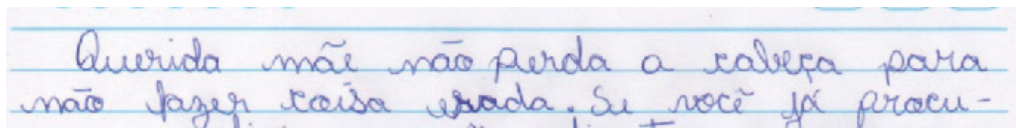 Querida mãe não perda a cabeça para
não fazer coisa erada. Se você já procu-